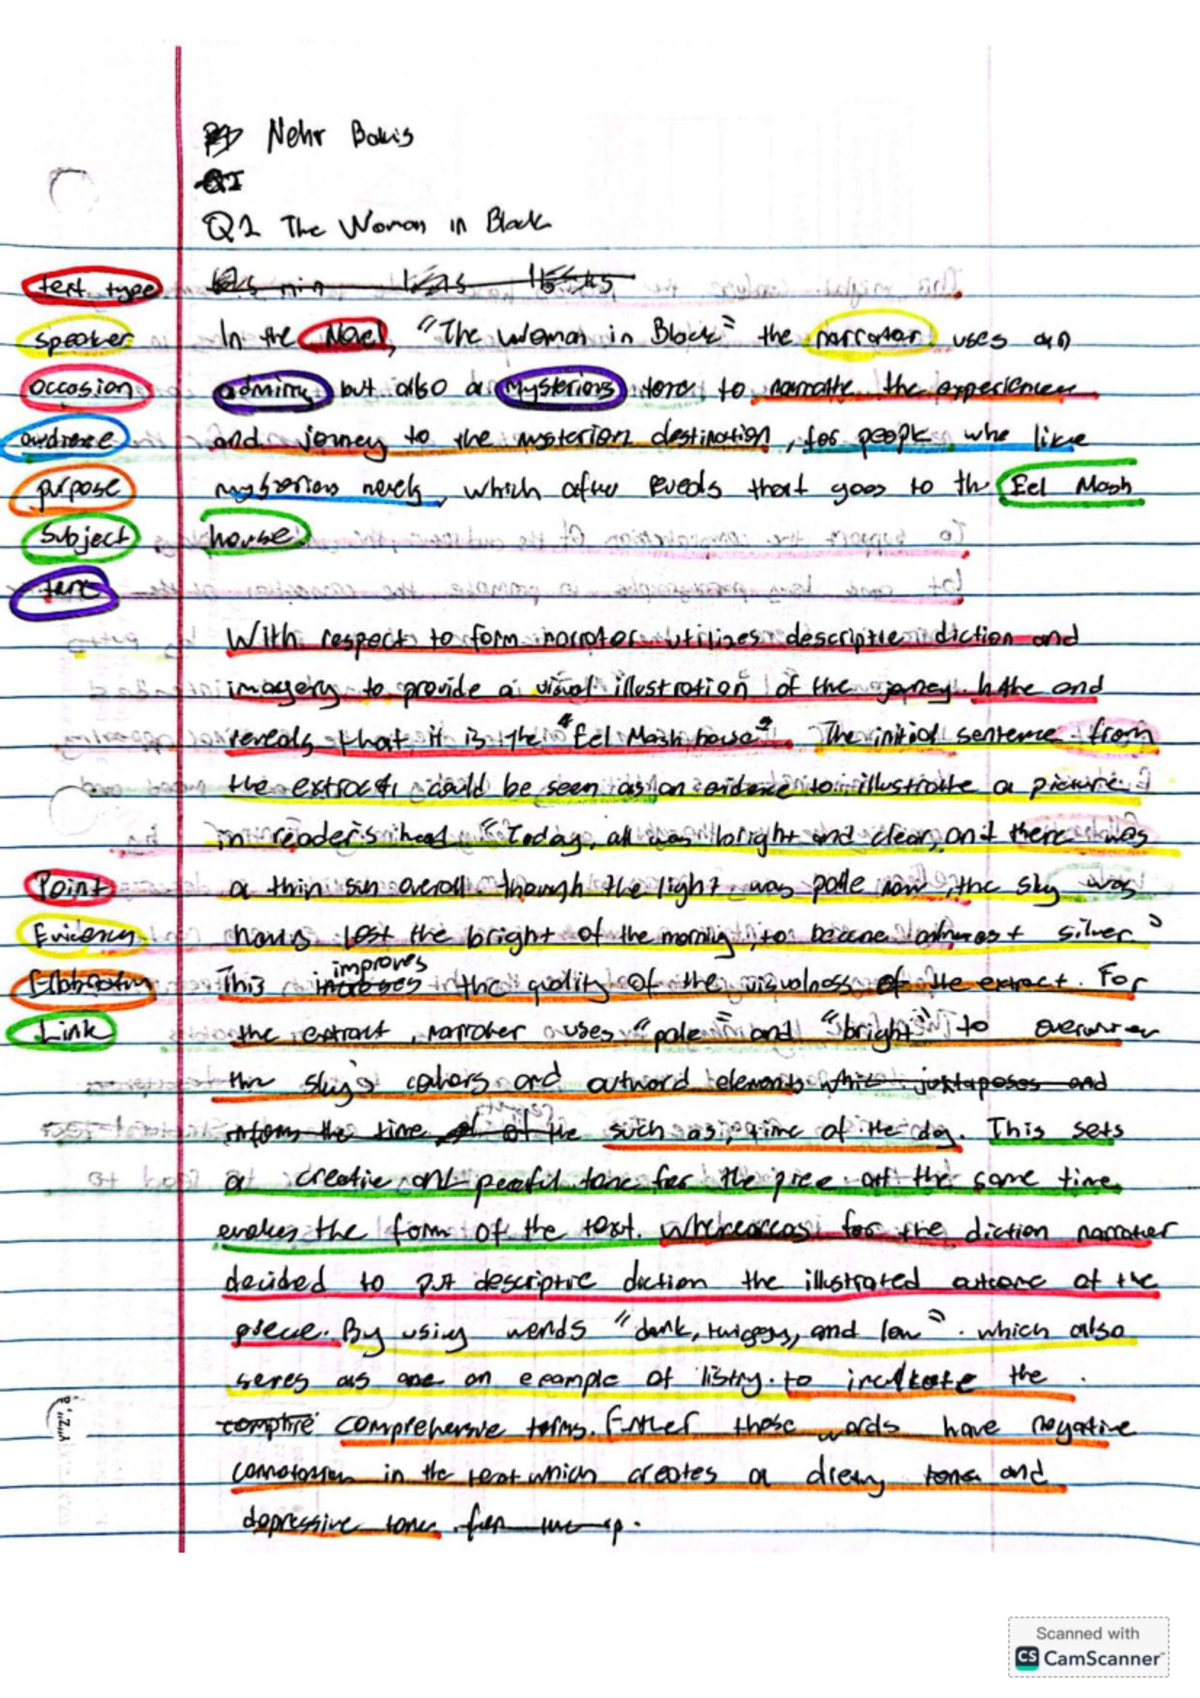 Nehr Bakis
Q1
Q2 The Woman in Black
text type
speaker In the Novel, "The Woman in Black" the narrator uses an
occasion admiring but also a mysterious tone to narrate the experiences
audience and jorney to the mysterion destination, for people who like
purpose mysterious novels, which after reveals that goes to the Eel Mash
Subject house
tone
With respect to form narrator utilizes descriptive diction and
imagery to provide a visual illustration of the jorney. In the end
reveals that it is the "Eel Mash house". The initial sentence from
the extract, could be seen as an evidence to illustrate a picture
in reader's head "Today, all was bright and clear, and there was
Point a thin sun overall though the light was pale now, the sky was
Evidency lost the bright of the morning, to become almost silver."
improves
Elaboration This increases the quality of the visualness of the extract. For
Link the extract, narrator uses "pale" and "bright" to overview
the sky's colours and outward elements which juxtaposes and
inform the time of the such as, time of the day. This sets
a creative and peaceful tone for the piece at the same time
evokes the form of the text. Whereas for the diction narrator
decided to put descriptive diction the illustrated outcome of the
piece. By using words "dank, and low". which also
serves as one an example of listing. to the
comprehensive terms. Further those words have negative
connotation in the text which creates a dreary tone and
depressive tone.
Scanned with
CS CamScanner